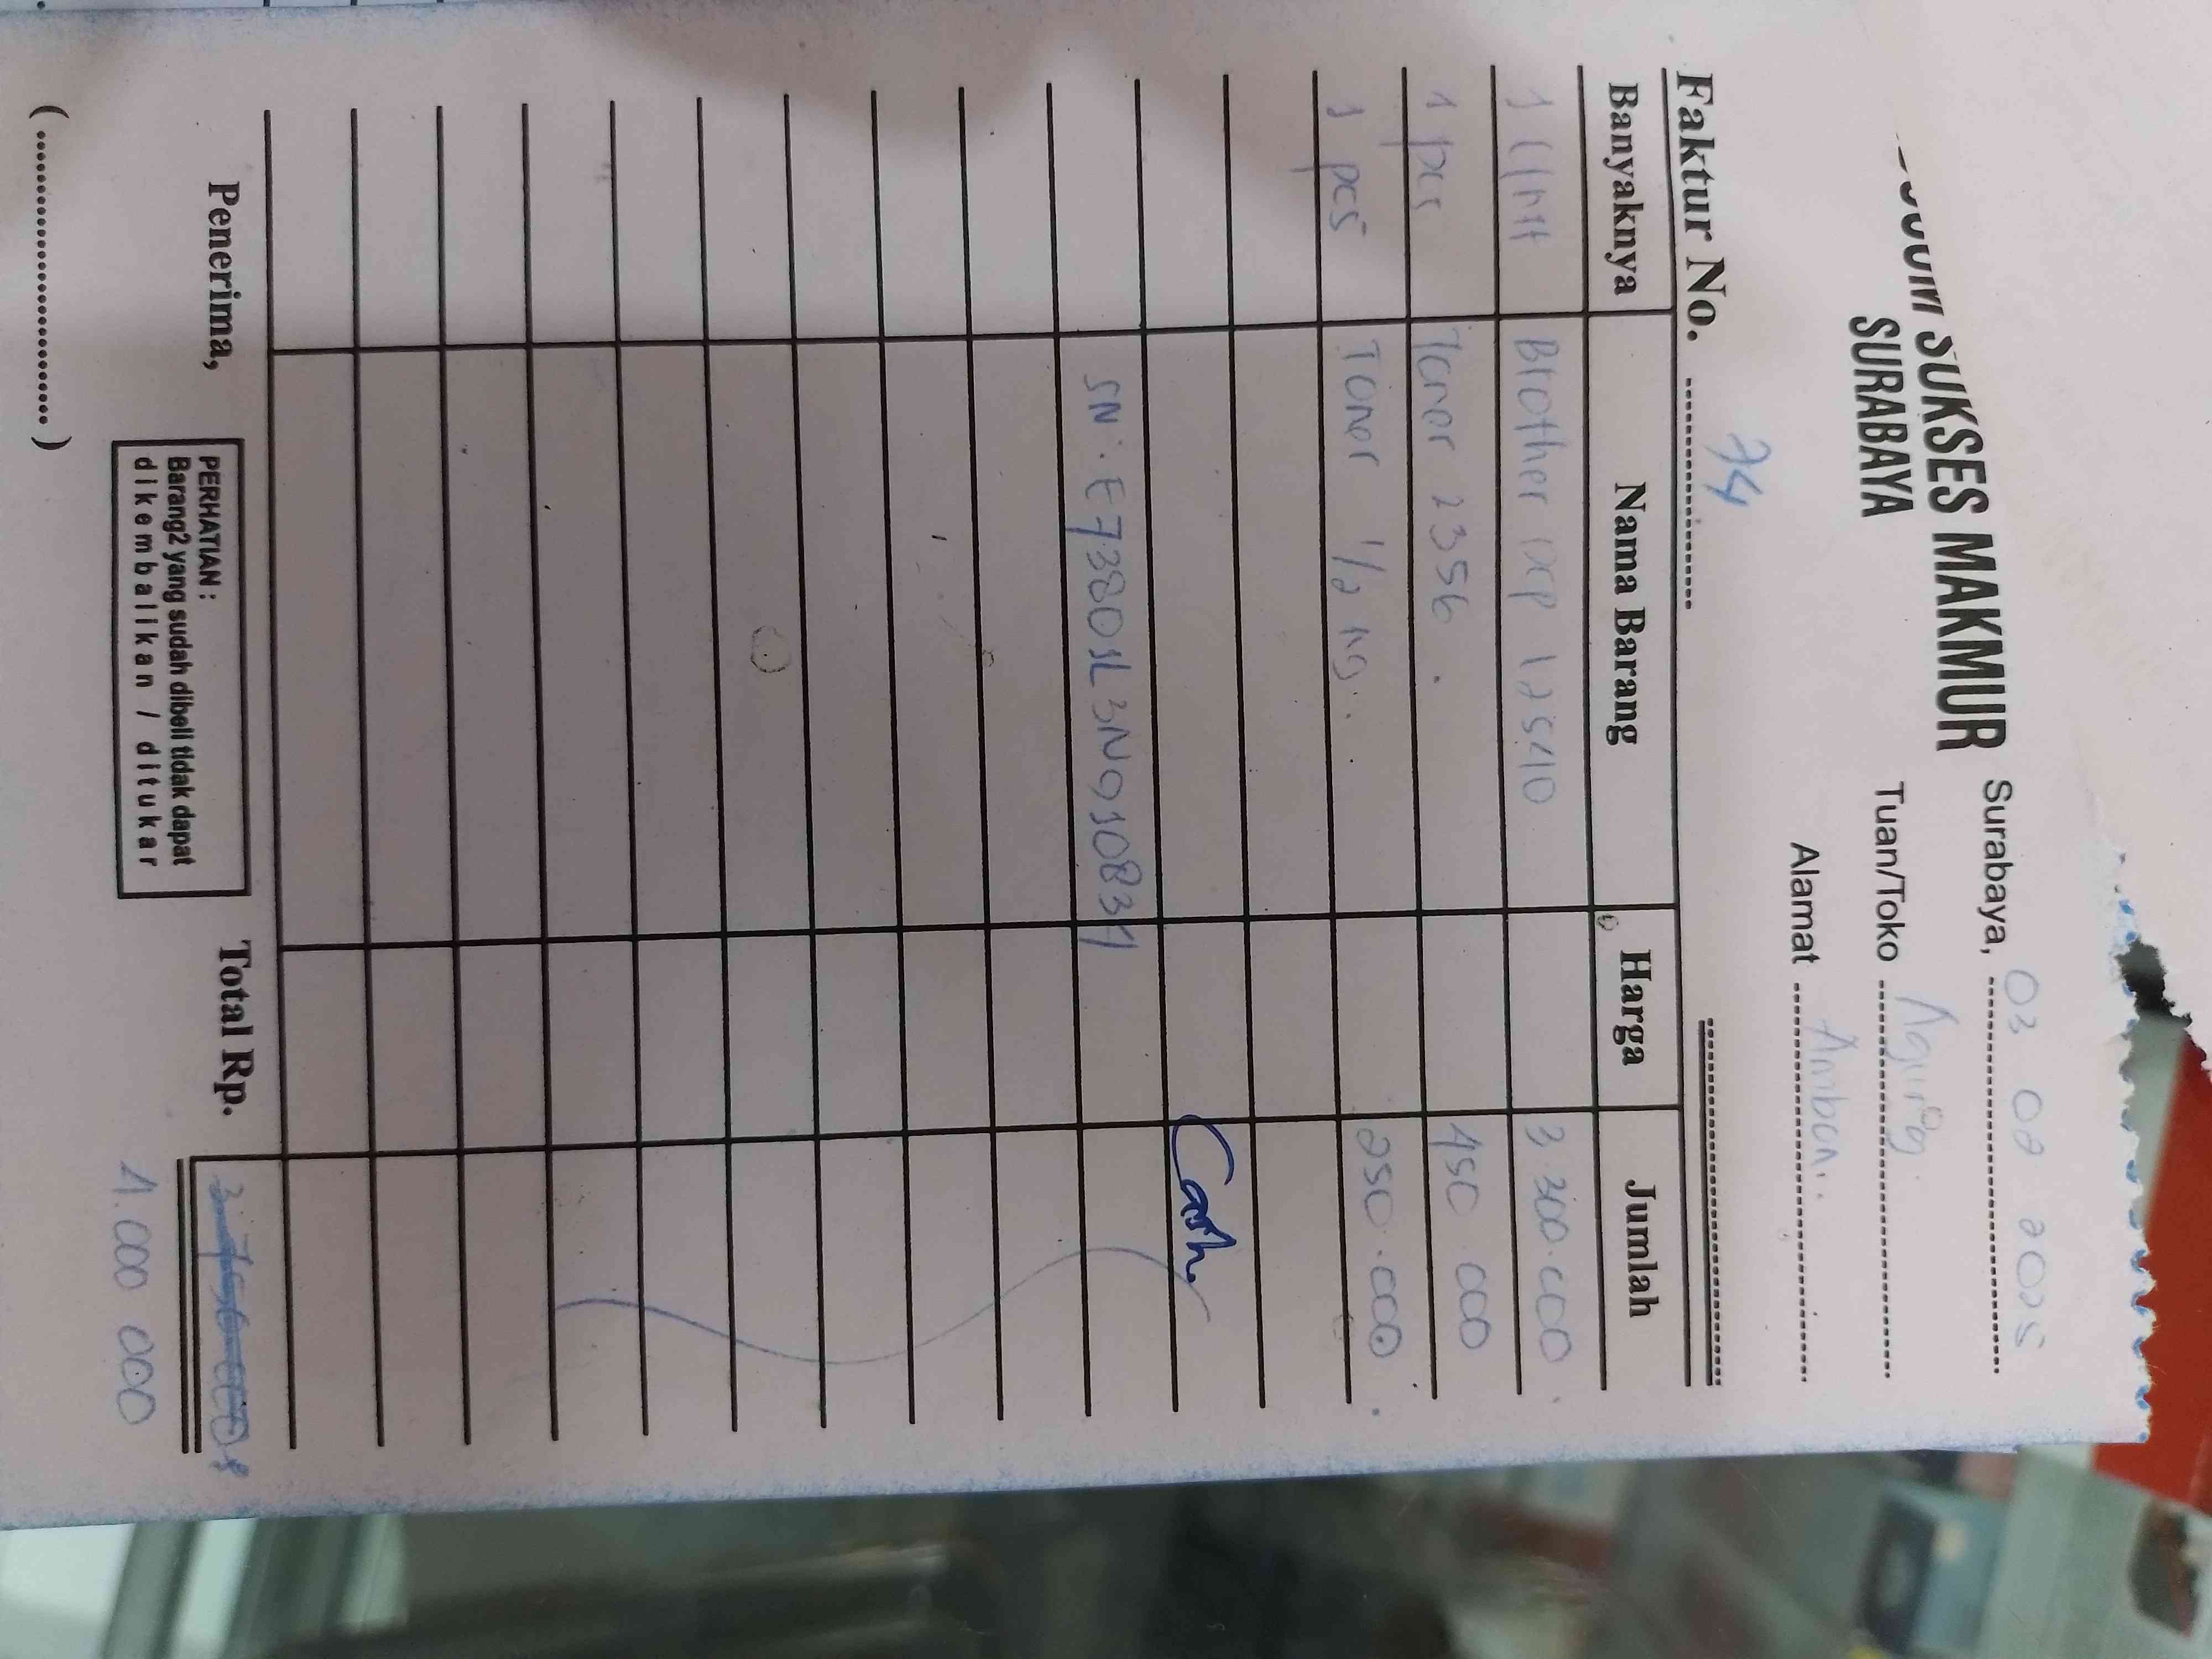 SUKSES MAKMUR
SURABAYA
Surabaya, 03 02 2025
Tuan/Toko Agung
Alamat Ambon.
Faktur No. 74
Banyaknya Nama Barang Harga Jumlah
1 Unit Brother DCP L2540 3 300.000.
1 pcs Toner 2356. 450 000
1 pcs Toner 1/2 kg. 250.000.
Cash
SN: E73801L3N910834
Penerima,
PERHATIAN :
Barang2 yang sudah dibeli tidak dapat
dikembalikan / ditukar
Total Rp.
4.000 000
(........................)